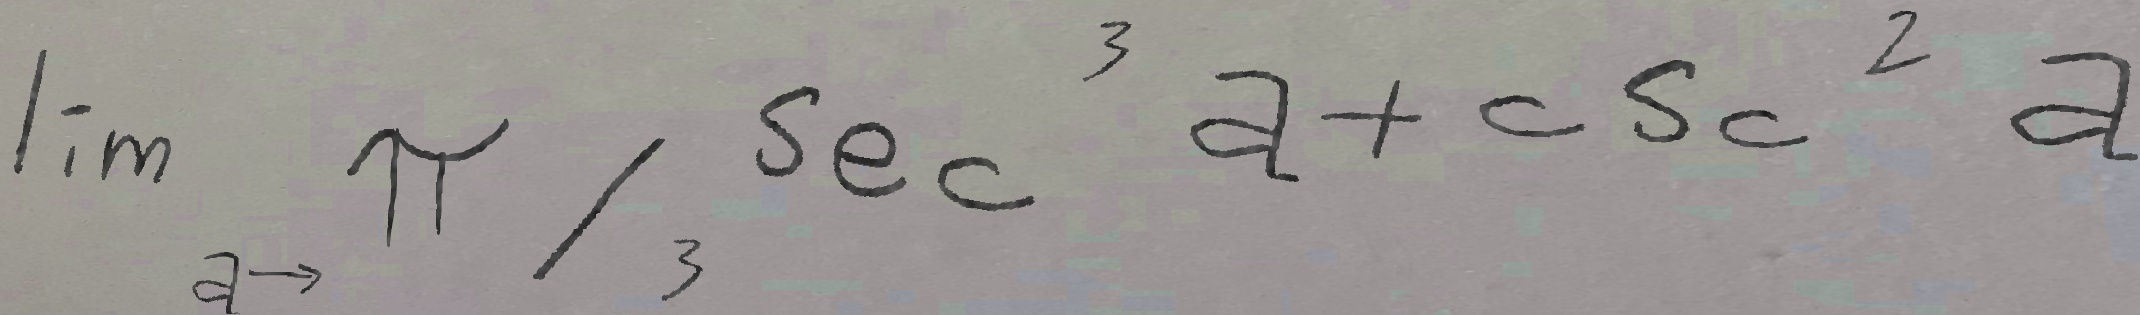 lim a→π/3 sec³ a + csc² a